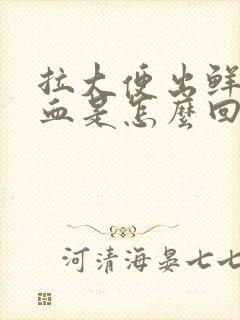 拉大便出鲜
血是怎麽回
河清海晏七七